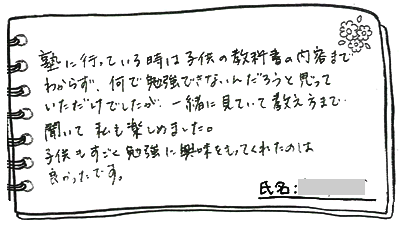 塾に行っている時は子供の教科書の内容まで
わからず、何で勉強できないんだろうと思って
いただけでしたが、一緒に見ていて教え方まで
聞いて 私も楽しめました。
子供もすごく勉強に興味をもってくれたのは
良かったです。
氏名: